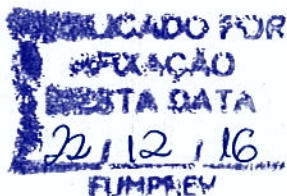 PUBLICADO POR
AFIXAÇÃO
NESTA DATA
22 / 12 / 16
FUMPREV